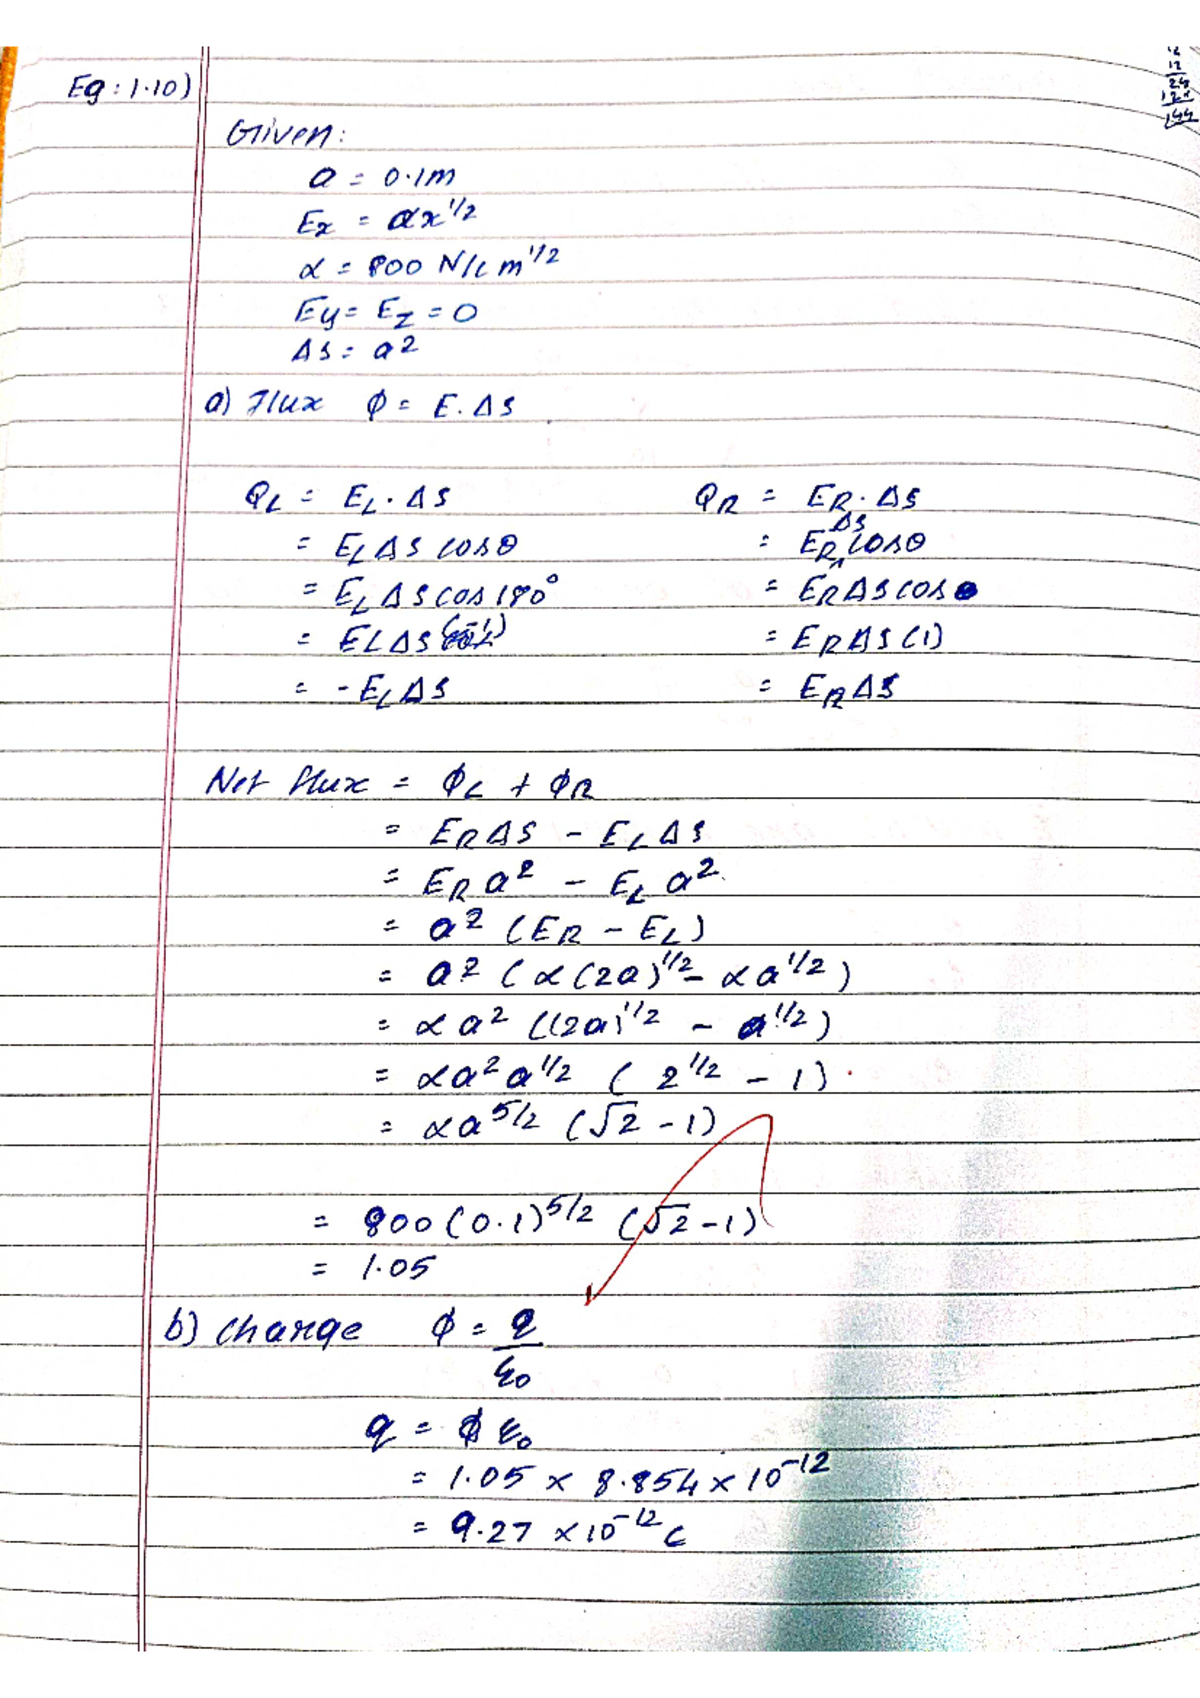 12
12
24
12x
144
Eg: 1.10)
Given:
a = 0.1m
Ex = αx^1/2
α = 800 N/C m^1/2
Ey = Ez = 0
ΔS = a²
a) Flux ϕ = E.ΔS
QL = EL . ΔS
= EL ΔS cosθ
= EL ΔS cos 180°
= EL ΔS (-1)
= - EL ΔS
QR = ER . ΔS
= ER ΔS cosθ
= ER ΔS cos 0
= ER ΔS (1)
= ER ΔS
Net flux = ϕL + ϕR
= ER ΔS - EL ΔS
= ER a² - EL a².
= a² (ER - EL)
= a² (α(2a)^1/2 - αa^1/2)
= αa² ((2a)^1/2 - a^1/2)
= αa² a^1/2 (2^1/2 - 1)
= αa^5/2 (√2 - 1)
= 800 (0.1)^5/2 (√2 - 1)
= 1.05
b) Charge ϕ = q/ε₀
q = ϕ ε₀
= 1.05 × 8.854 × 10^-12
= 9.27 × 10^-12 C